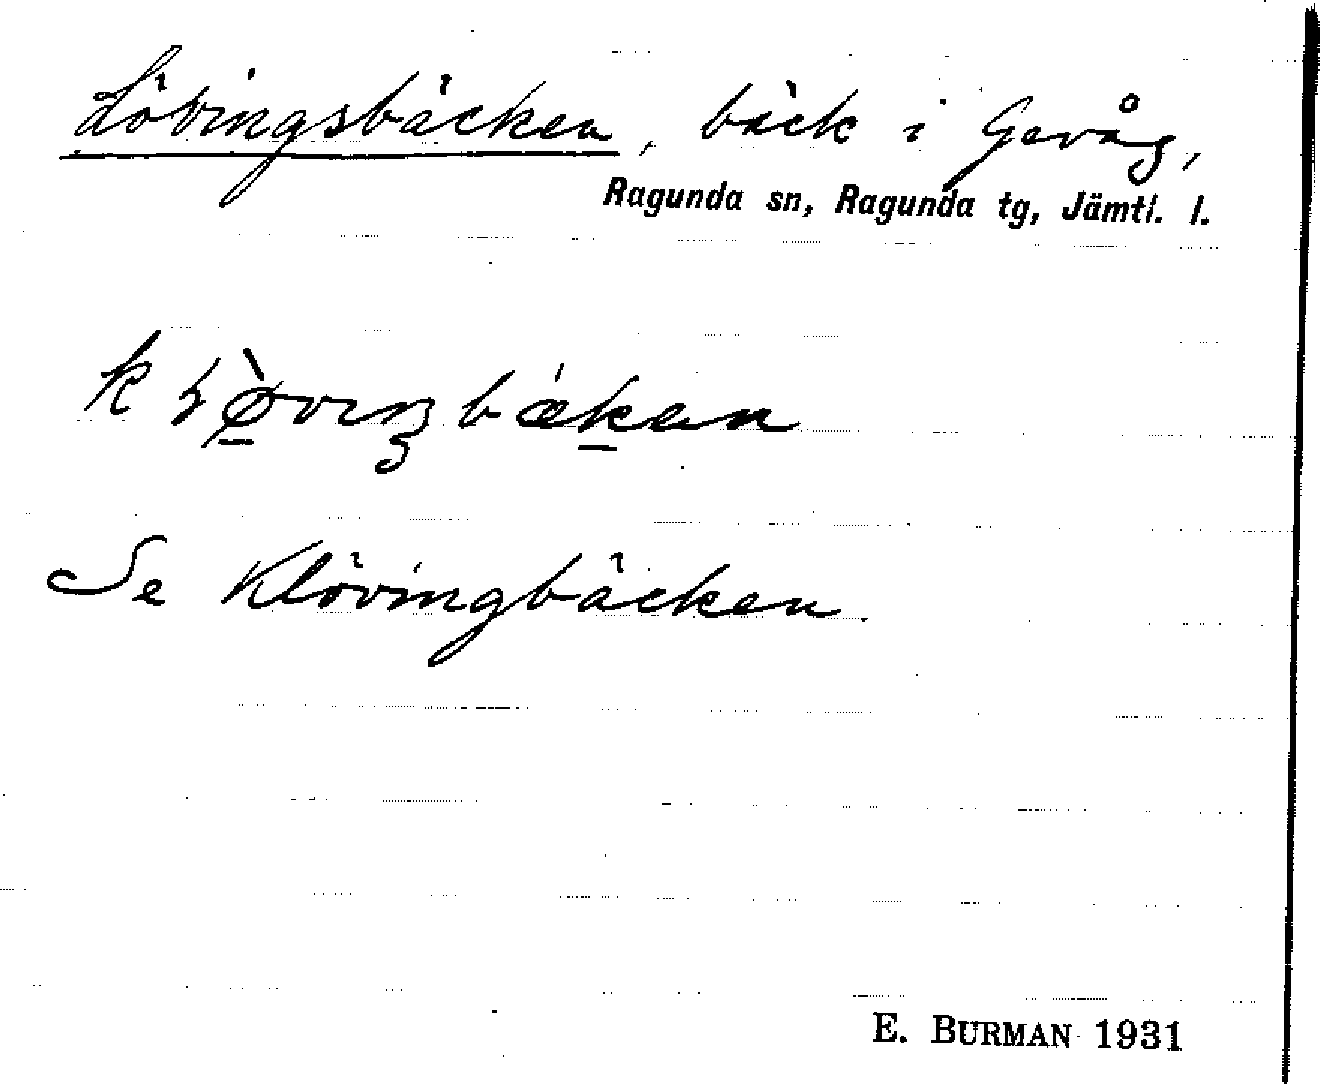 Lövingsbäcken, bäck i Gevåg,
Ragunda sn, Ragunda tg, Jämtl. l.
Se Klövingbäcken.
E. BURMAN 1931